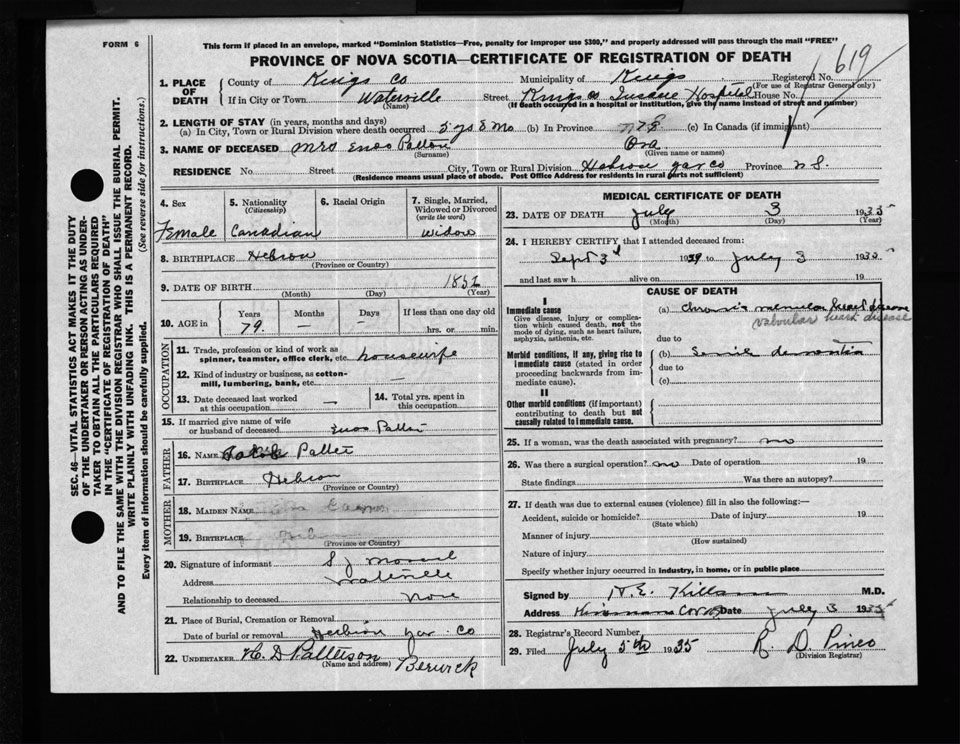 FORM 6
This form if placed in an envelope, marked "Dominion Statistics—Free, penalty for improper use $300," and properly addressed will pass through the mail "FREE"
PROVINCE OF NOVA SCOTIA—CERTIFICATE OF REGISTRATION OF DEATH
619
1. PLACE OF DEATH
County of Kings Co Municipality of Kings Registered No.
(For use of Registrar General only)
If in City or Town Waterville Street Kings Co Insane Hospital House No.
(Name) (If death occurred in a hospital or institution, give the name instead of street and number)
2. LENGTH OF STAY (in years, months and days)
(a) In City, Town or Rural Division where death occurred (b) In Province (c) In Canada (if immigrant)
3. NAME OF DECEASED Mrs Enos Ora
(Surname) (Given name or names)
RESIDENCE No. Street. City, Town or Rural Division Hebron Yar Co Province N.S.
(Residence means usual place of abode. Post Office Address for residents in rural parts not sufficient)
4. Sex Female
5. Nationality (Citizenship) Canadian
6. Racial Origin
7. Single, Married, Widowed or Divorced (write the word) widow
8. BIRTHPLACE Hebron
(Province or Country)
9. DATE OF BIRTH
(Month) (Day) (Year)
10. AGE in Years Months Days If less than one day
79. — — hrs. or min.
OCCUPATION
11. Trade, profession or kind of work as spinner, teamster, office clerk, etc. housewife
12. Kind of industry or business, as cotton-mill, lumbering, bank, etc. —
13. Date deceased last worked at this occupation —
14. Total yrs. spent in this occupation
15. If married give name of wife or husband of deceased Enos
FATHER
16. NAME
17. BIRTHPLACE Hebron
(Province or Country)
MOTHER
18. MAIDEN NAME
19. BIRTHPLACE
(Province or Country)
20. Signature of informant
Address Waterville
Relationship to deceased None
21. Place of Burial, Cremation or Removal
Date of burial or removal Hebron Yar. Co
22. UNDERTAKER H. D Patterson
(Name and address) Berwick
MEDICAL CERTIFICATE OF DEATH
23. DATE OF DEATH July 3 1935
(Month) (Day)
24. I HEREBY CERTIFY that I attended deceased from:
Sept 3d 1929 to July 3 1935
and last saw h alive on 19
CAUSE OF DEATH
I
Immediate cause
Give disease, injury or complication which caused death, not the mode of dying, such as heart failure, asphyxia, asthenia, etc.
(a) Chronic heart disease
valvular heart disease
due to
Morbid conditions, if any, giving rise to immediate cause (stated in order proceeding backwards from immediate cause).
(b) Senile dementia
due to
(c)
II
Other morbid conditions (if important) contributing to death but not causally related to immediate cause.
25. If a woman, was the death associated with pregnancy? no
26. Was there a surgical operation? no Date of operation 19
State findings Was there an autopsy?
27. If death was due to external causes (violence) fill in also the following:—
Accident, suicide or homicide? Date of injury 19
(State which)
Manner of injury
(How sustained)
Nature of injury
Specify whether injury occurred in industry, in home, or in public place
Signed by N.E. Killam M.D.
Address Date July 3 1935
28. Registrar's Record Number
29. Filed July 5th 1935 R. D. Pineo
(Division Registrar)
SEC. 46—VITAL STATISTICS ACT MAKES IT THE DUTY
OF THE UNDERTAKER OR PERSON ACTING AS UNDER-
TAKER TO OBTAIN ALL THE PARTICULARS REQUIRED
IN THE "CERTIFICATE OF REGISTRATION OF DEATH"
AND TO FILE THE SAME WITH THE DIVISION REGISTRAR WHO SHALL ISSUE THE BURIAL PERMIT.
WRITE PLAINLY WITH UNFADING INK. THIS IS A PERMANENT RECORD.
Every item of information should be carefully supplied. (See reverse side for instructions.)